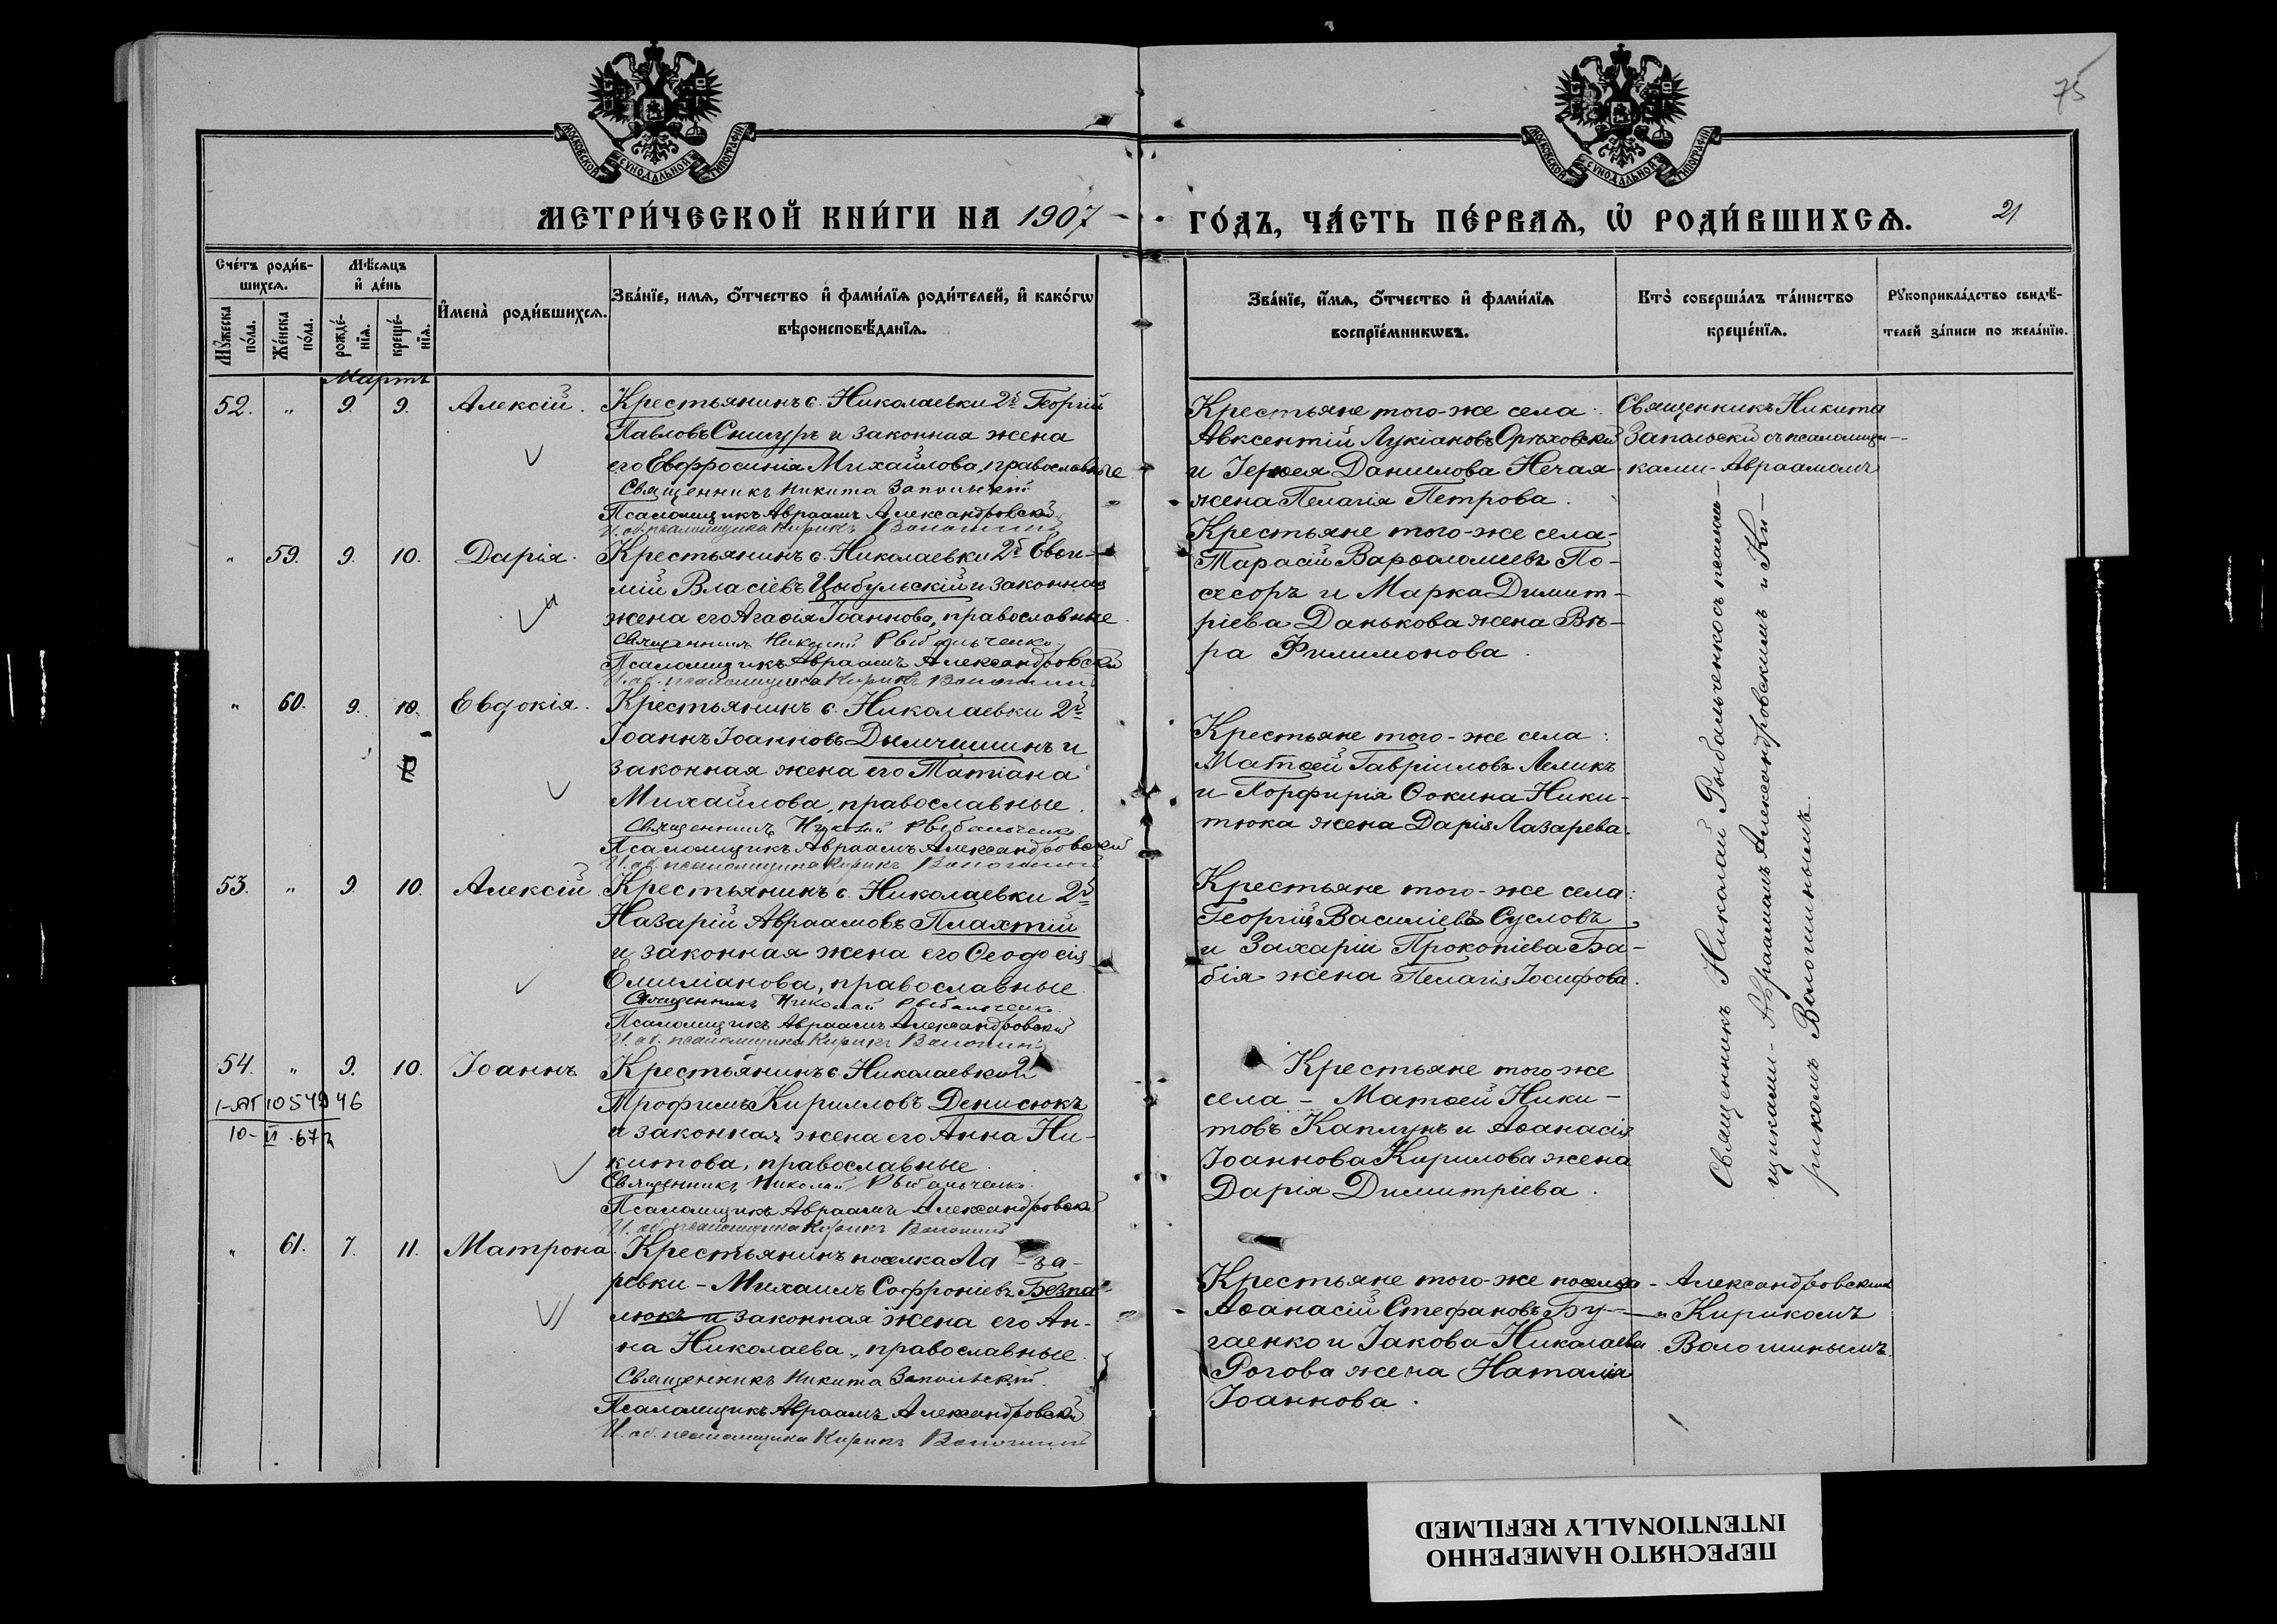 75
МОСКОВСКОЙ СѴНОДАЛЬНОЙ ТИПОГРАФІИ
МОСКОВСКОЙ СѴНОДАЛЬНОЙ ТИПОГРАФІИ
МЕТРИ́ЧЕСКОЙ КНИ́ГИ НА 1907
ГО́ДЪ, ЧА́СТЬ ПЕ́РВАѦ, Ѽ РОДИ́ВШИХСѦ. 21
Сче́тъ роди́в-
шихсѧ.
Мѣ́сѧцъ
и҆ де́нь
Мꙋ́жеска по́ла.
Же́нска по́ла.
рожде́-нїѧ.
креще́-нїѧ.
И҆мена̀ роди́вшихсѧ.
Зва́нїе, имѧ, ѻ҆́тчество и҆ фами́лїѧ роди́телей, и҆ како́гѡ
вѣроисповѣ́данїѧ.
Зва́нїе, и҆́мѧ, ѻ҆́тчество и҆ фами́лїѧ
воспрїе́мникѡвъ.
Кто̀ соверша́лъ та́инство
креще́нїѧ.
Рꙋкоприкла́дство свидѣ́-
телей за́писи по жела́нїю.
Мартъ
52. " 9. 9. Алексій. Крестьянинъ с. Николаевки 2й Георгій
Павловъ Снигуръ и законная жена
его Евфросинія Михайлова, православные
Священникъ Никита Запольскій
Псаломщикъ Авраамъ Александровскій
И. об. псаломщика Кирикъ Волошинъ
Крестьяне того-же села:
Авксентій Лукіановъ Орѣховскій
и Іерофея Данилова Нечая
жена Пелагія Петрова.
Священникъ Никита
Запольскій съ псаломщи-
ками - Авраамомъ
" 59. 9. 10. Дарія. Крестьянинъ с. Николаевки 2й Евѳи-
мій Власіевъ Цыбульскій и законная
жена его Агаѳія Іоаннова, православные.
Священникъ Николай Рыбальченко
Псаломщикъ Авраамъ Александровскій
И. об. псаломщика Кирикъ Волошинъ
Крестьяне того-же села-
Тарасій Варѳаломеевъ По-
Марка Димит-
ріева Данькова жена Вѣ-
ра Филимонова.
" 60. 9. 10. Евдокія. Крестьянинъ с. Николаевки 2й
10
Іоаннъ Іоанновъ Дымчишинъ и
законная жена его Татіана
Михайлова, православные.
Священникъ Николай Рыбальченко
Псаломщикъ Авраамъ Александровскій
И. об. псаломщика Кирикъ Волошинъ
Крестьяне того-же села:
Матѳей Гавріиловъ Лемикъ
и Порфирія Ѳокина Ники-
тюка жена Дарія Лазарева.
53. " 9. 10. Алексій. Крестьянинъ с. Николаевки 2й
Назарій Авраамовъ Плахтій
и законная жена его Ѳеодосія
Емиліанова, православные
Священникъ Николай Рыбальченко
Псаломщикъ Авраамъ Александровскій
И. об. псаломщика Кирикъ Волошинъ
Крестьяне того-же села:
Георгій Василіевъ Сусловъ
и Захарія Прокопіева Ба-
бія жена Пелагія Іосифова.
54. " 9. 10. Іоаннъ Крестьянинъ с. Николаевки 2й
Трофимъ Кирилловъ Денисюкъ
и законная жена его Анна Ни-
китова, православные.
1-ЯП 1054946
10-II.67г
Священникъ Николай Рыбальченко.
Псаломщикъ Авраамъ Александровскій
И. об. псаломщика Кирикъ Волошинъ
Крестьяне того же
села - Матѳей Ники-
товъ Каплунъ и Аѳанасія
Іоаннова Кирилова жена
Дарія Димитріева.
Священникъ Николай Рыбальченко съ псалом-
щиками - Авраамомъ Александровскимъ и Ки-
рикомъ Волошинымъ.
" 61. 7. 11. Матрона. Крестьянинъ поселка Ла-за-
ревки - Михаилъ Софроніевъ Безпа-
люкъ и законная жена его Ан-
на Николаева, православные.
Священникъ Никита Запольскій.
Псаломщикъ Авраамъ Александровскій
И. об. псаломщика Кирикъ Волошинъ
Крестьяне того-же поселка -
Аѳанасій Стефановъ Бу-
гаенко и Іакова Николаева
Рогова жена Наталія
Іоаннова.
Александровскимъ
и Кирикомъ
Волошинымъ.
ПЕРЕСНЯТО НАМЕРЕННО
INTENTIONALLY REFILMED